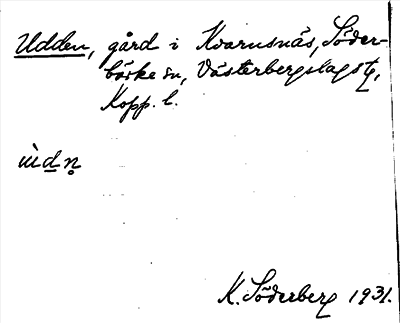 Udden, gård i Kvarnsnäs, Söder-
bärke sn, Västerbergslags tg,
Kopp. l.
ùdṇ
K. Söderberg 1931.